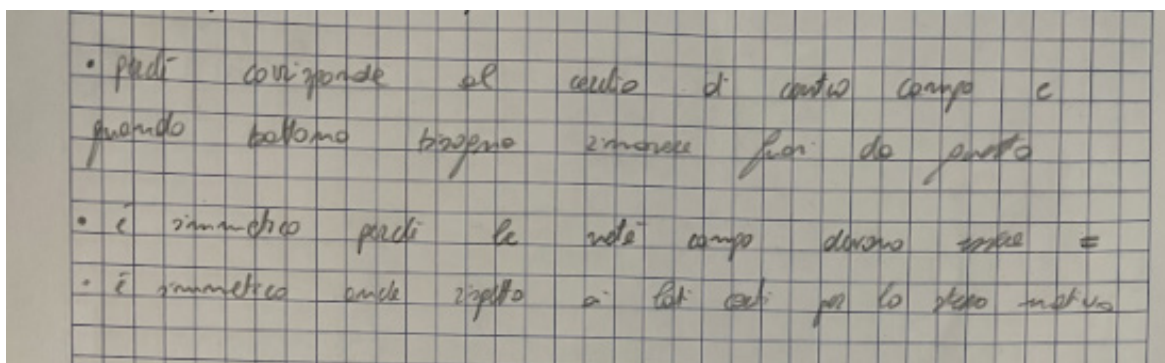 • perché corrisponde al cerchio di centro campo e
quando battono bisogna rimanere fuori da questo
• è simmetrico perché le metà campo devono essere =
• è simmetrico anche rispetto ai lati corti per lo stesso motivo